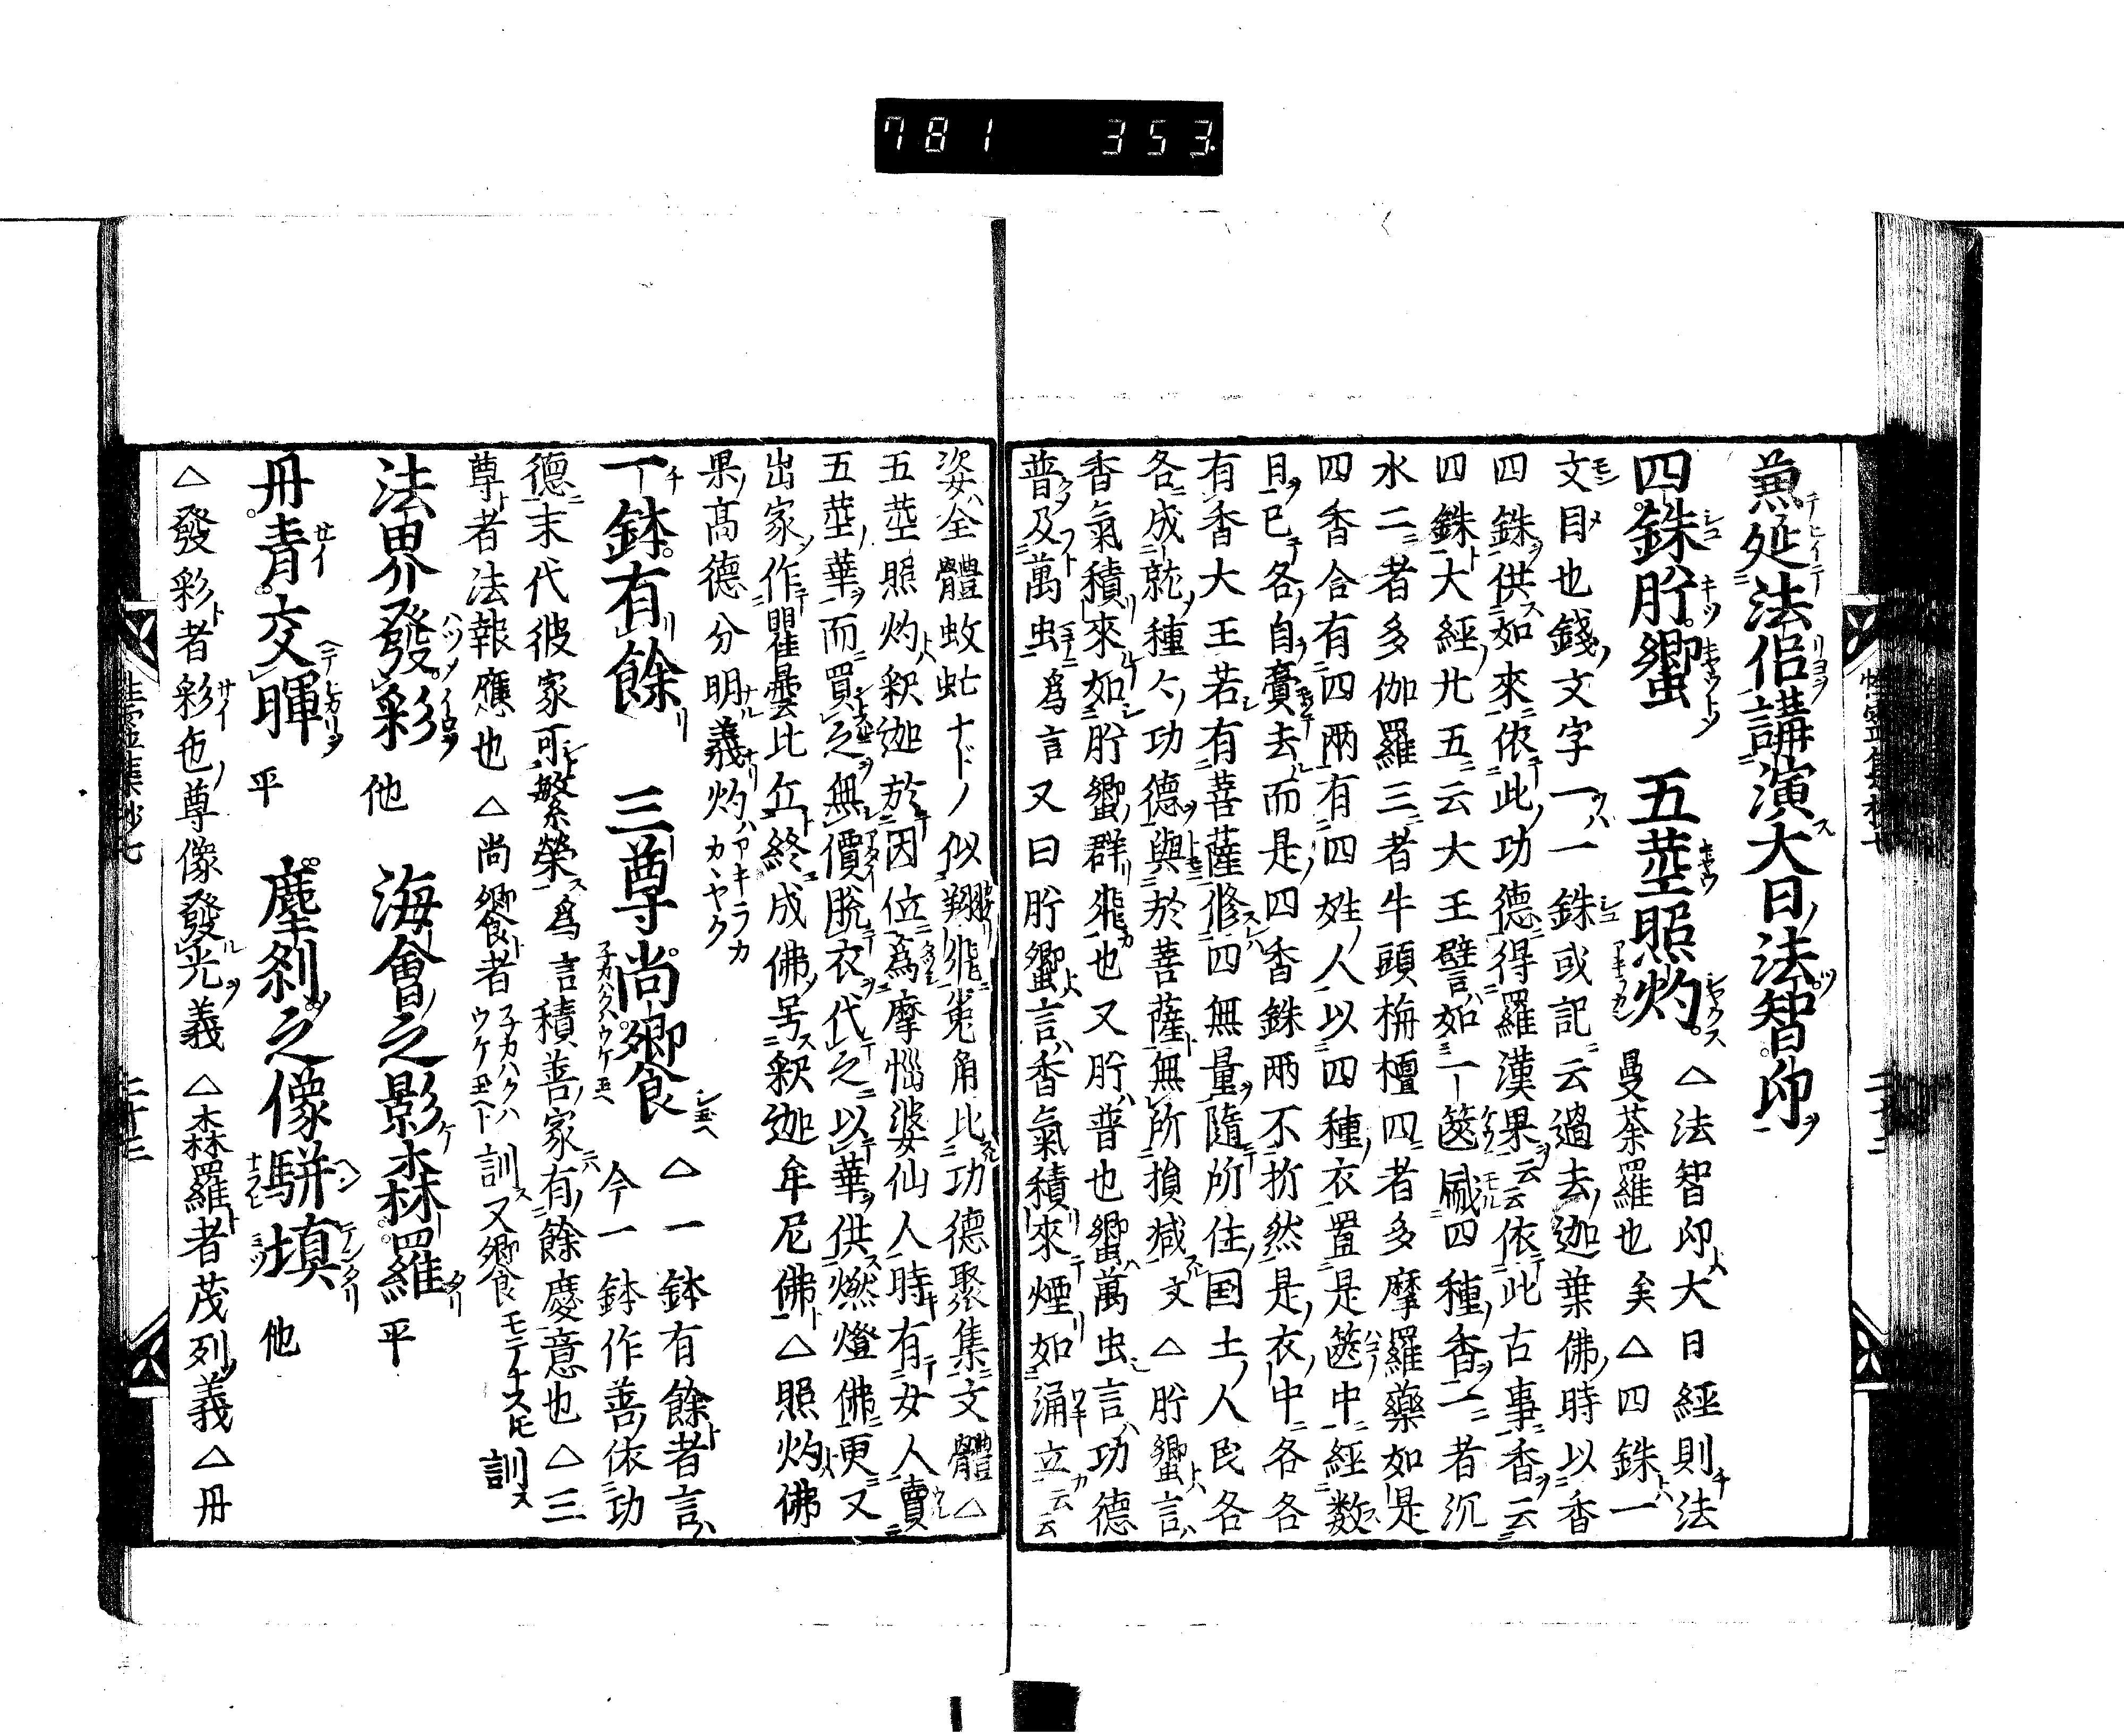 781 353
兼延法侶講演大日法智印
四銖肹蠁 五莖照灼 △法智印大日經則法
曼荼羅也矣△四銖一
文目也錢文字一一銖或記云過去迦葉佛時以香
四銖供如來依此功德得羅漢果云云依此古事香云
四銖大經廿五云大王譬如一篋盛四種香一者沉
水二者多伽羅三者牛頭栴檀四者多摩羅藥如是
四香合有四兩有四姓人以四種衣置是篋中經数
日已各自賷去而是四香銖兩不折然是衣中各各
有香大王若有菩薩修四無量隨所住国土人民各
各成就種々功德與於菩薩無所損減文△肹蠁言
香氣積來如肹蠁群飛也又肹普也蠁萬虫言功德
普及萬虫爲言又曰肹蠁言香氣積來煙如涌立云云
姿全體蚊虻ナドノ似翔飛兎角比功德聚集文體△
五莖照灼釈迦於因位爲摩惱婆仙人時有女人賣
五莖華而買之無價脫衣代之以華供燃燈佛更又
出家作瞿曇比丘終成佛号釈迦牟尼佛△照灼佛
果高德分明義灼アキラカカヽヤク
一鉢有餘 三尊尚饗 △一鉢有餘者言
今一鉢作善依功
德末代彼家可繁榮爲言積善家有餘慶意也△三
尊者法報應也△尚饗者 訓又饗モテナス 訓
法界發彩 他 海會之影森羅 平
丹青交暉 平 塵刹之像駢塡 他
△發彩者彩色尊像發光義△森羅者茂列義△丹